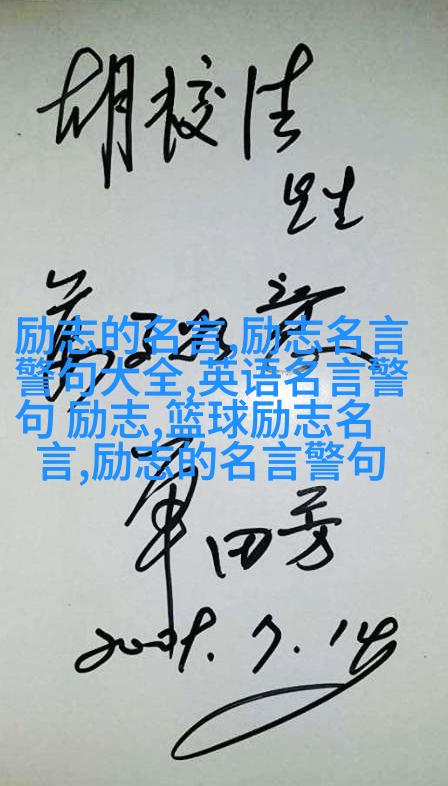 先生
励志的名言,励志名言
警句大全,英语名言警
句 励志,篮球励志名
言,励志的名言警句
单田芳